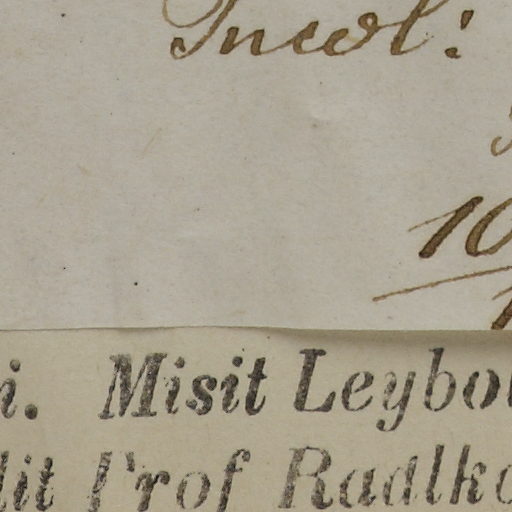 Incol:
10
i. Misit Leybol
dit Prof Radlko